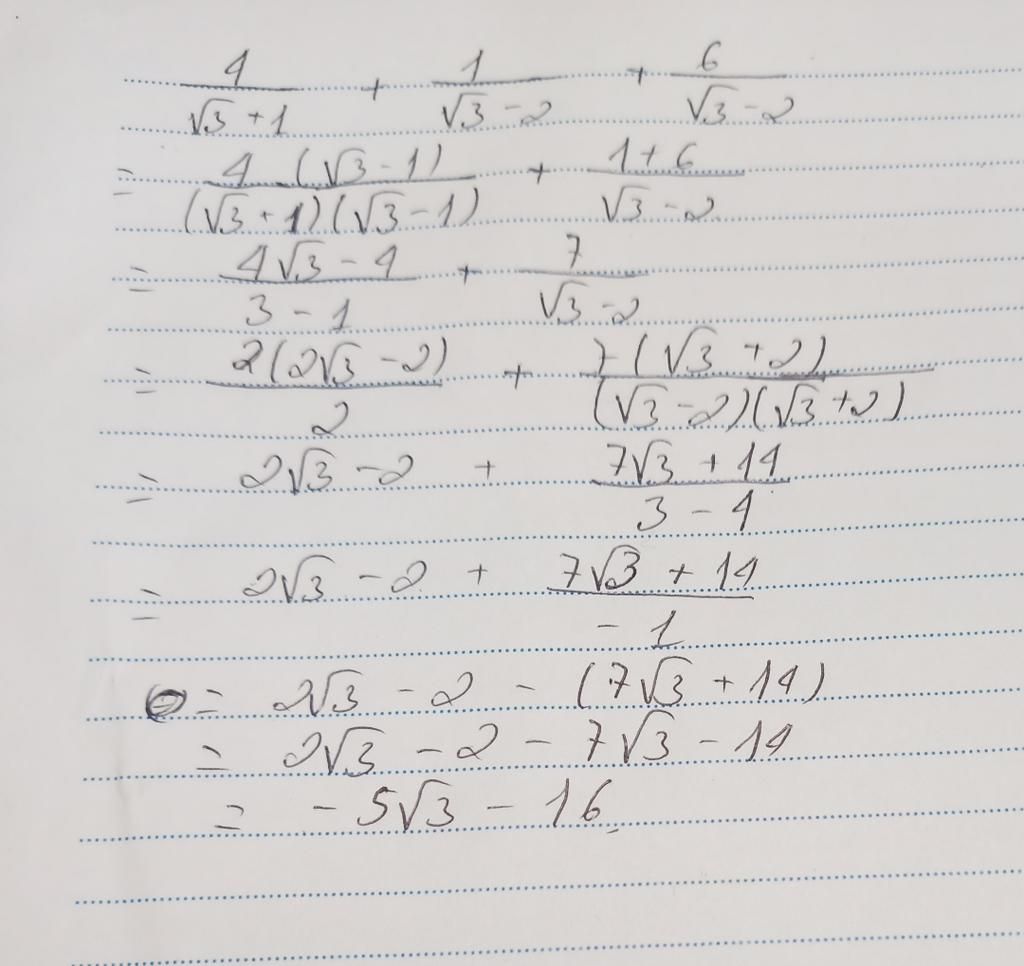 4/(√3 + 1) + 1/(√3 - 2) + 6/(√3 - 2)
= 4(√3 - 1)/((√3 + 1)(√3 - 1)) + (1 + 6)/(√3 - 2)
= (4√3 - 4)/(3 - 1) + 7/(√3 - 2)
= 2(2√3 - 2)/2 + 7(√3 + 2)/((√3 - 2)(√3 + 2))
= 2√3 - 2 + (7√3 + 14)/(3 - 4)
= 2√3 - 2 + (7√3 + 14)/(-1)
= 2√3 - 2 - (7√3 + 14)
= 2√3 - 2 - 7√3 - 14
= -5√3 - 16.